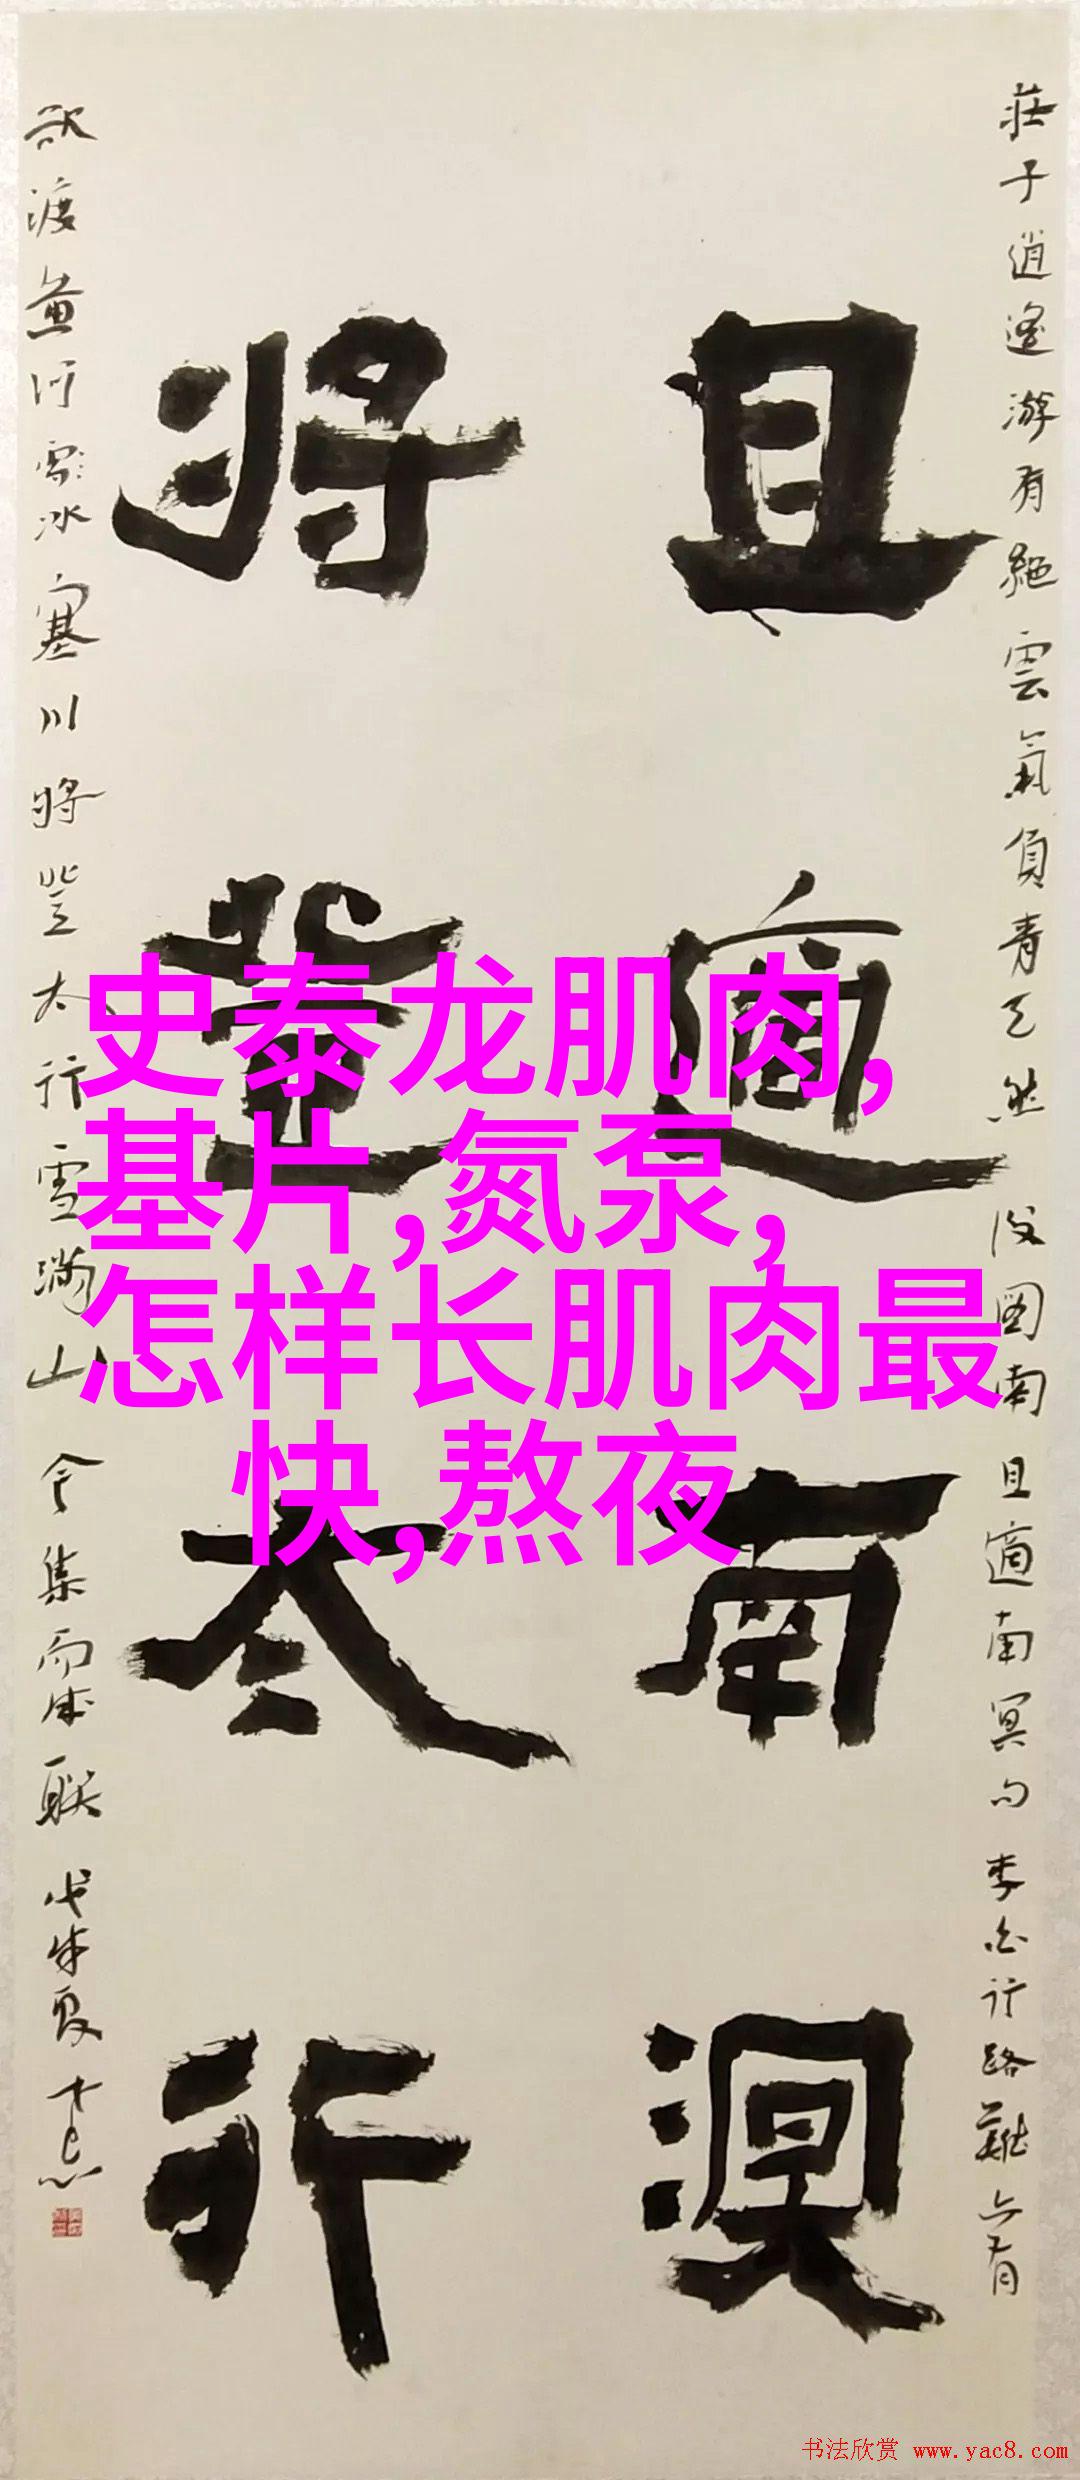 莊子逍遙游有絕雲氣負青天然後圖南且適南冥句李白行路難亦有
且適南溟
將登太行
欲渡黃河冰塞川將登太行雪滿山今集而成聯戊戌夏
史泰龙肌肉,
基片,氮泵,
怎样长肌肉最
快,熬夜
书法欣赏 www.yac8.com